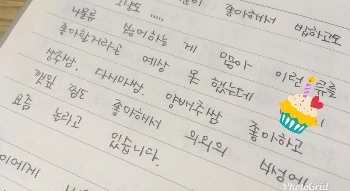 좋아해서 밥하고도
나물류 붙여하는 게 많아 이런
좋아할거라곤 예상 못 했는데
상추쌈, 다시마쌈, 양배추쌈 좋아하고
깻잎 찜도 좋아해서 의외의
요즘 놀리고 있습니다.
이에게
PhotoGrid